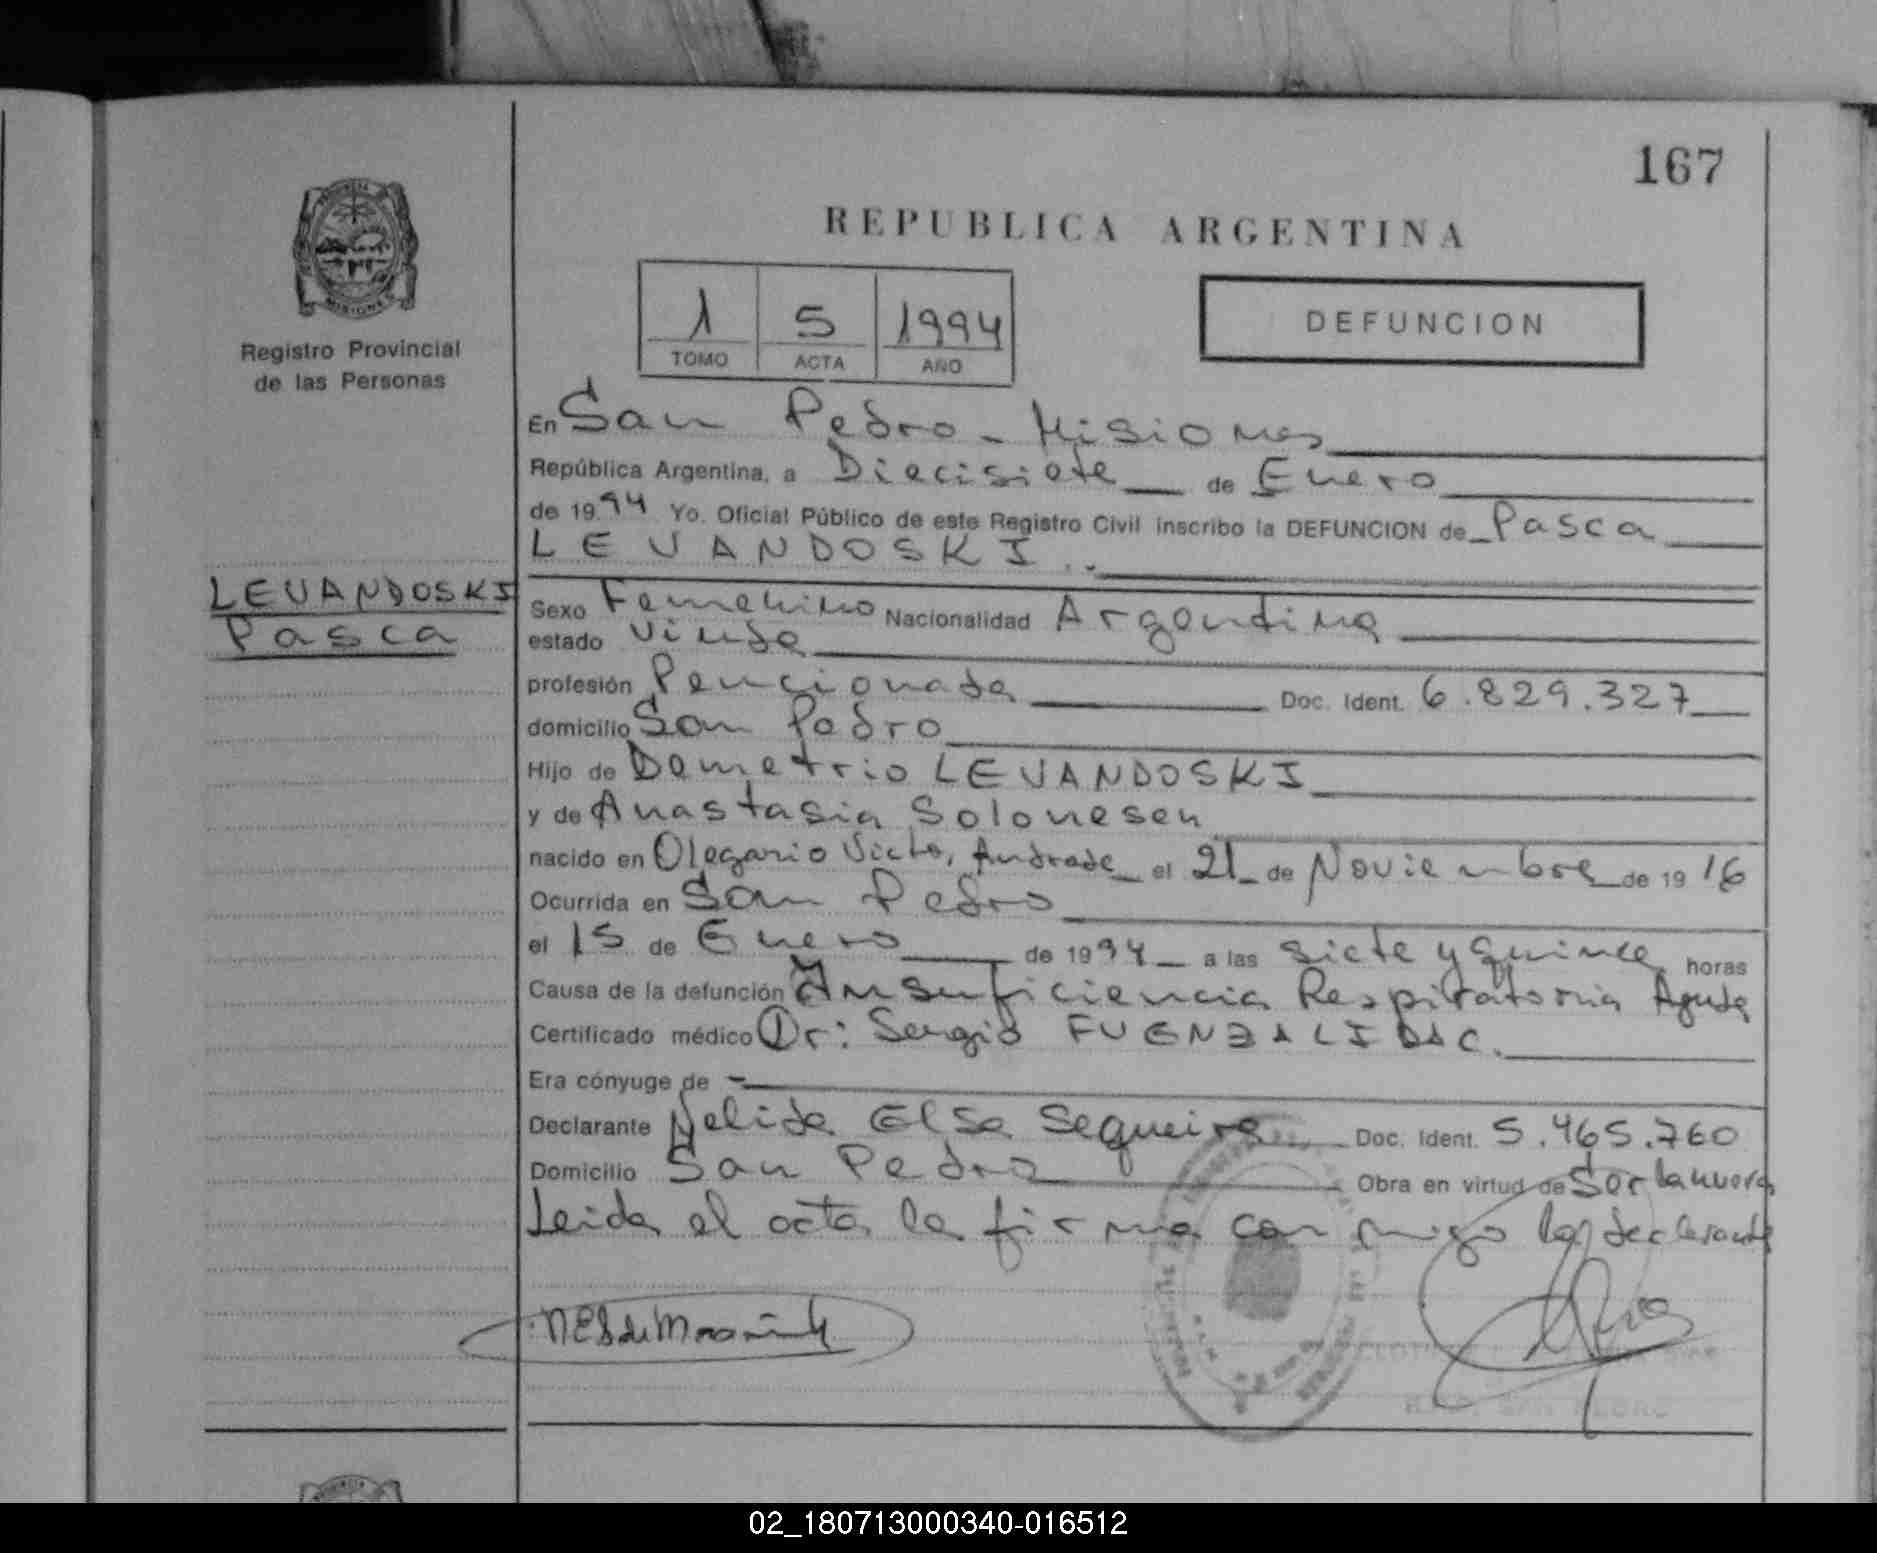 167
REPUBLICA ARGENTINA
MISIONES
Registro Provincial
de las Personas
1 5 1994
TOMO ACTA AÑO
DEFUNCION
En San Pedro - Misiones
República Argentina, a Diecisiete de Enero
de 1994 Yo. Oficial Público de este Registro Civil inscribo la DEFUNCION de Pasca
LEVANDOSKI..
LEVANDOSKI
Pasca
Sexo Femenino Nacionalidad Argentina
estado Viuda
profesión Pencionada Doc. Ident. 6.829.327
domicilio San Pedro
Hijo de Demetrio LEVANDOSKI
y de Anastasia Solonesen
nacido en Olegario Victo, Andrade el 21 de Noviembre de 1916
Ocurrida en San Pedro
el 15 de Enero de 1994 a las siete y quince horas
Causa de la defunción Insuficiencia Respiratoria Aguda
Certificado médico Dr: Sergio FUENZALIDA C.
Era cónyuge de -
Declarante Nelida Elsa Sequeira Doc. Ident. 5.465.760
Domicilio San Pedro Obra en virtud de Ser la nuera
Leida el acta la firma con migo la declarante
R.P.P. SAN PEDRO
02_180713000340-016512